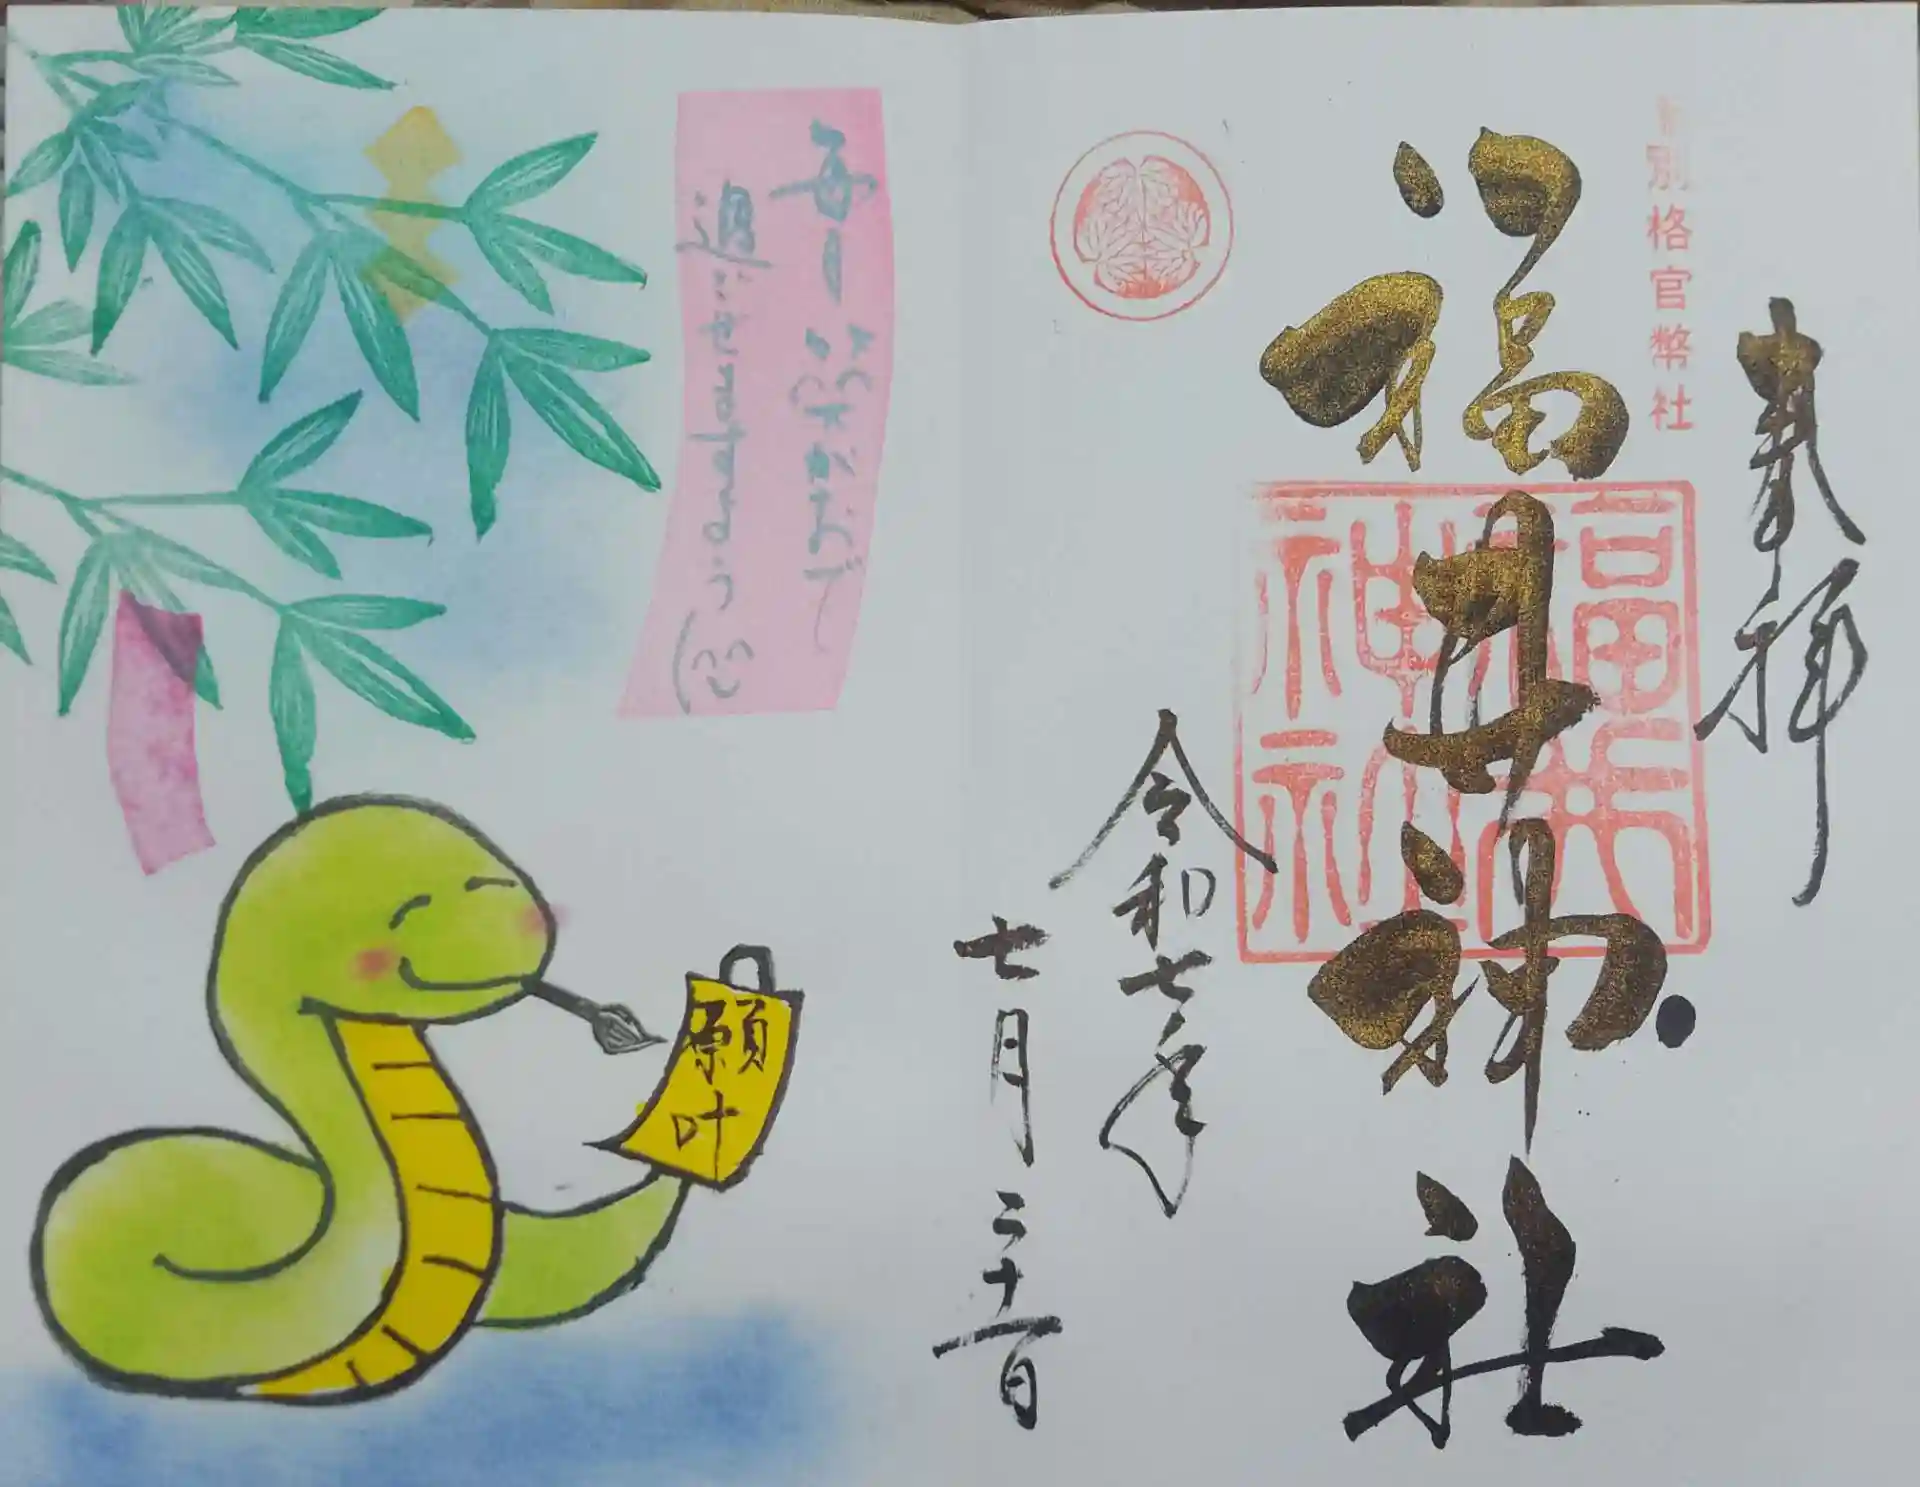 奉拝
別格官幣社
福井神社
福井神社
令和七年
七月二十一日
毎日笑がおで
過ごせますように
願叶